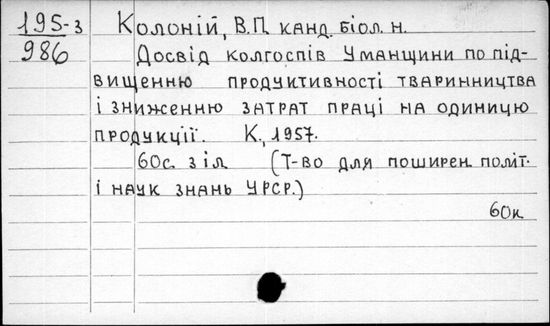 195-3 Колоній, В.П. канд. біол. н.
986 Досвід колгоспів Уманщини по під-
вищенню продуктивності тваринництва
і зниженню затрат праці на одиницю
продукції. К., 1957.
60с. з іл. (Т-во для поширен. політ.
і наук знань УРСР.)
60к